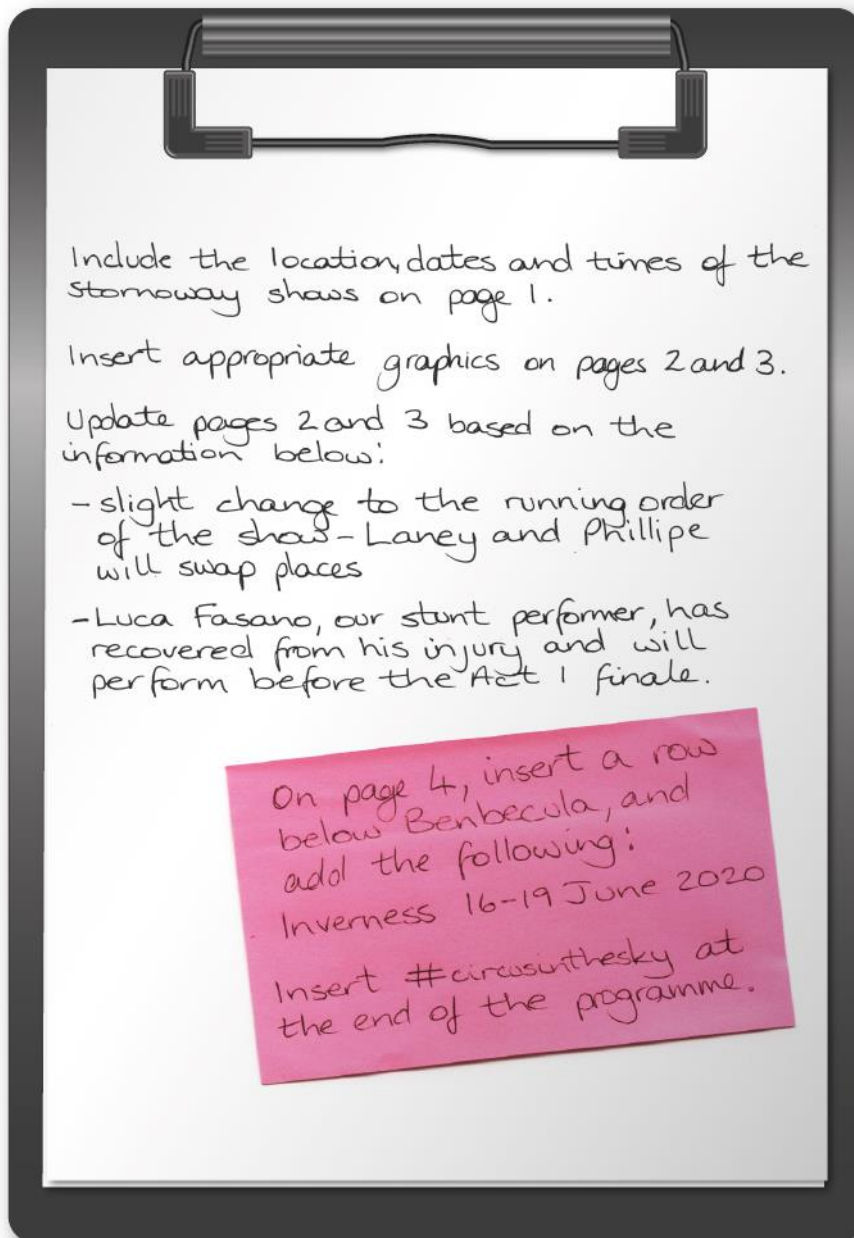 Include the location, dates and times of the
Stornoway shows on page 1.
Insert appropriate graphics on pages 2 and 3.
Update pages 2 and 3 based on the
information below:
- slight change to the running order
of the show - Laney and Phillipe
will swap places
- Luca Fasano, our stunt performer, has
recovered from his injury and will
perform before the Act 1 finale.
On page 4, insert a row
below Benbecula, and
add the following:
Inverness 16-19 June 2020
Insert #circusinthesky at
the end of the programme.